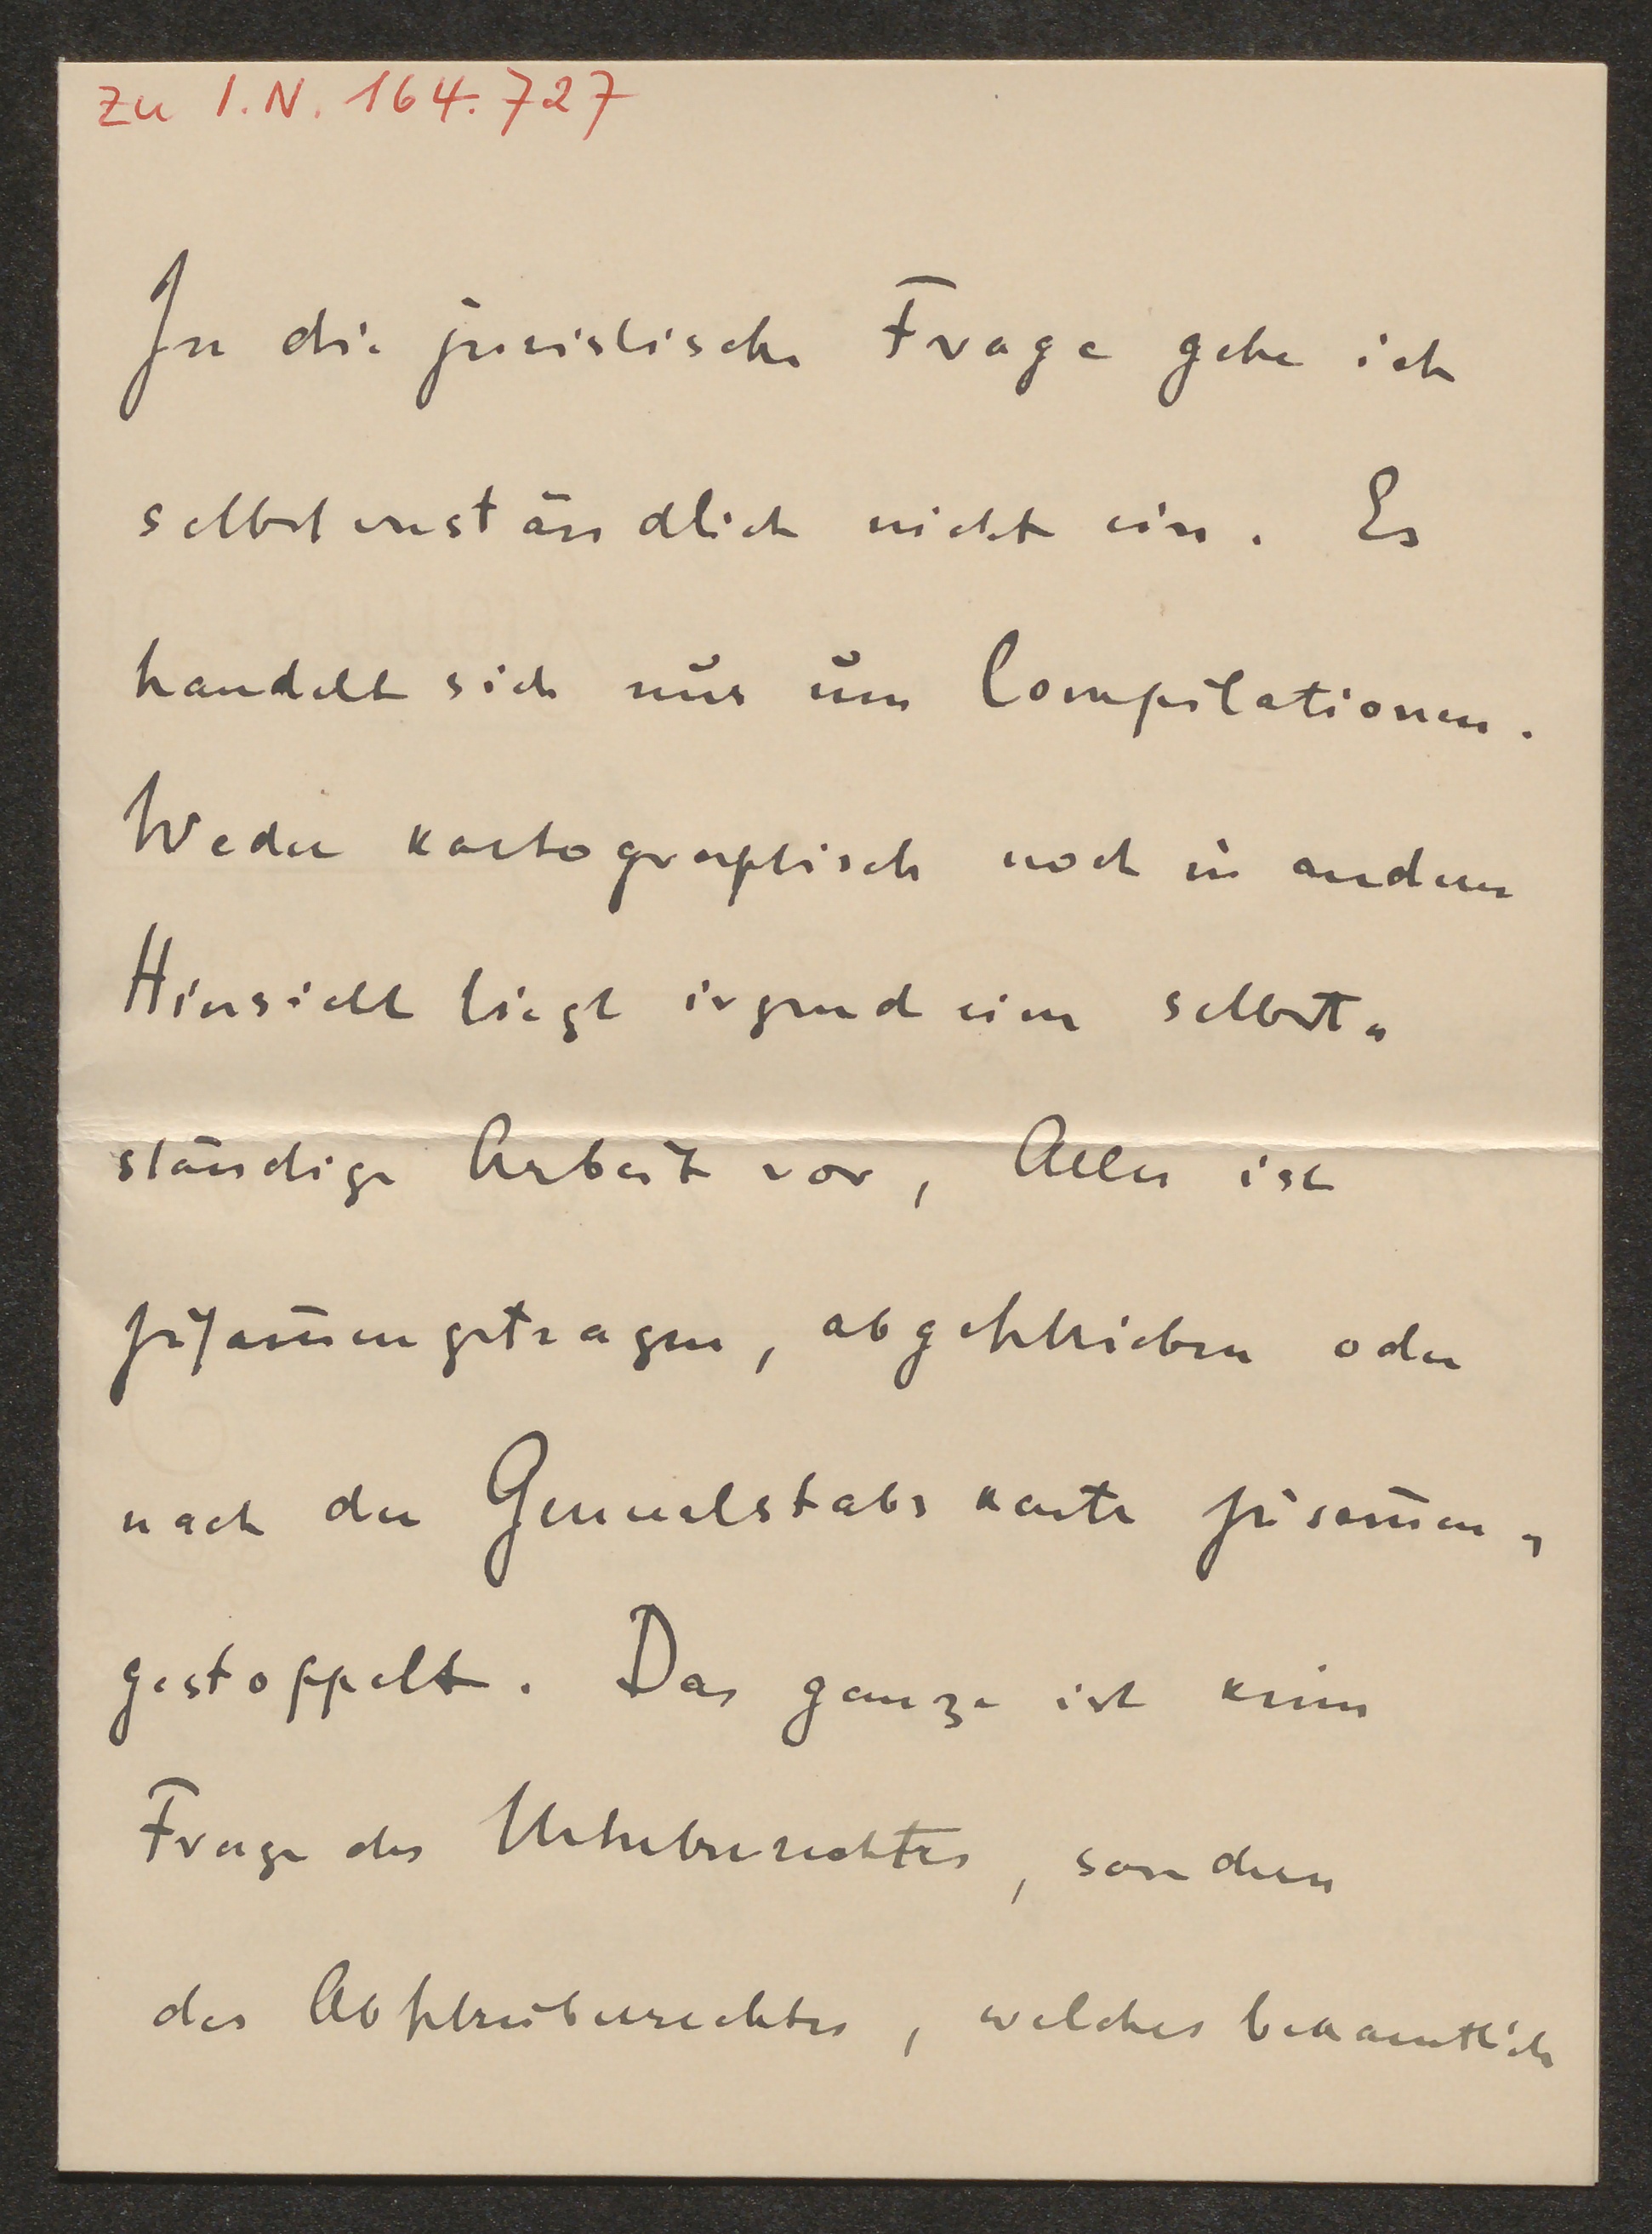 zu I.N. 164.727
In die juristische Frage gehe ich
selbstverständlich nicht ein. Es
handelt sich nur um Compilationen.
Weder kartographisch noch in anderer
Hinsicht liegt irgend eine selbst-
ständige Arbeit vor, Alles ist
zusam̅engetragen, abgeschrieben oder
nach der Generalstabskarte zusam̅en-
gestoppelt. Das ganze ist keine
Frage des Urheberrechtes, sondern
des Abschreiberrechtes, welches bekanntlich